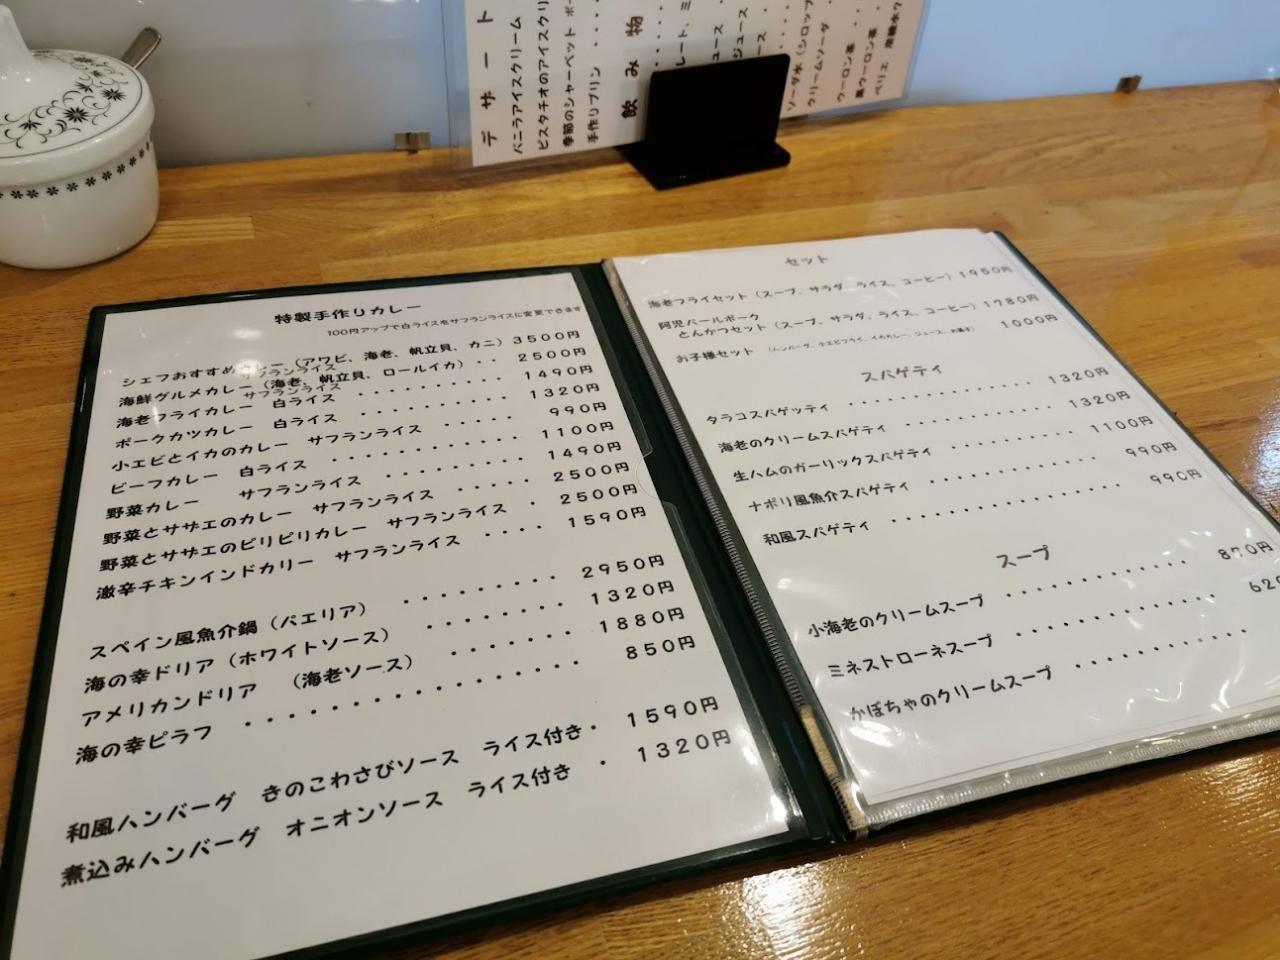 デザート
バニラアイスクリーム
ピスタチオのアイスクリ
季節のシャーベット
手作りプリン ・・・
飲み物
ソーダ水（シロップ
クリームソーダ
ウーロン茶
黒ウーロン茶
ペリエ
特製手作りカレー
100円アップで白ライスをサフランライスに変更できます
シェフおすすめカレー（アワビ、海老、帆立貝、カニ）3500円
サフランライス
海鮮グルメカレー（海老、帆立貝、ロールイカ） ・・ 2500円
サフランライス
海老フライカレー 白ライス ・・・・・・・・・・ 1490円
ポークカツカレー 白ライス ・・・・・・・・・・ 1320円
小エビとイカのカレー サフランライス ・・・・・ 990円
ビーフカレー 白ライス ・・・・・・・・・・・・ 1100円
野菜カレー サフランライス ・・・・・・・・・・ 1490円
野菜とサザエのカレー サフランライス ・・・・・ 2500円
野菜とサザエのピリピリカレー サフランライス ・ 2500円
激辛チキンインドカリー サフランライス ・・・・ 1590円
スペイン風魚介鍋（パエリア） ・・・・・・・・ 2950円
海の幸ドリア（ホワイトソース） ・・・・・・・ 1320円
アメリカンドリア （海老ソース） ・・・・・・ 1880円
海の幸ピラフ ・・・・・・・・・・・・・・・ 850円
和風ハンバーグ きのこわさびソース ライス付き・ 1590円
煮込みハンバーグ オニオンソース ライス付き ・ 1320円
セット
海老フライセット（スープ、サラダ、ライス、コーヒー）1950円
阿児パールポーク
とんかつセット（スープ、サラダ、ライス、コーヒー）1780円
お子様セット （ハンバーグ、小エビフライ、イカカレー、ジュース、お菓子） 1000円
スパゲティ
タラコスパゲッティ ・・・・・・・・・・・・ 1320円
海老のクリームスパゲティ ・・・・・・・・・ 1320円
生ハムのガーリックスパゲティ ・・・・・・・ 1100円
ナポリ風魚介スパゲティ ・・・・・・・・・・ 990円
和風スパゲティ ・・・・・・・・・・・・・・ 990円
スープ
小海老のクリームスープ ・・・・・・・・・・・ 870円
ミネストローネスープ ・・・・・・・・・・・・ 620
かぼちゃのクリームスープ ・・・・・・・・・・